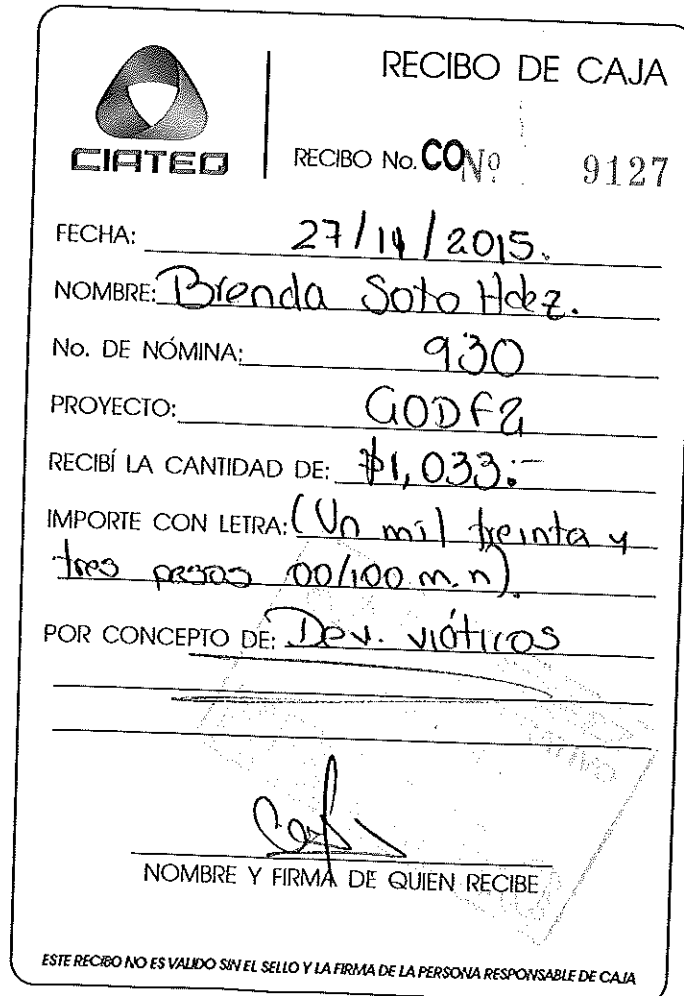 RECIBO DE CAJA
CIATEQ
RECIBO No. CO Nº 9127
FECHA: 27/11/2015.
NOMBRE: Brenda Soto Hdez.
No. DE NÓMINA: 930
PROYECTO: GODF2
RECIBÍ LA CANTIDAD DE: $1,033.-
IMPORTE CON LETRA: (Un mil treinta y
tres pesos 00/100 m.n).
POR CONCEPTO DE: Dev. viáticos
NOMBRE Y FIRMA DE QUIEN RECIBE
ESTE RECIBO NO ES VALIDO SIN EL SELLO Y LA FIRMA DE LA PERSONA RESPONSABLE DE CAJA